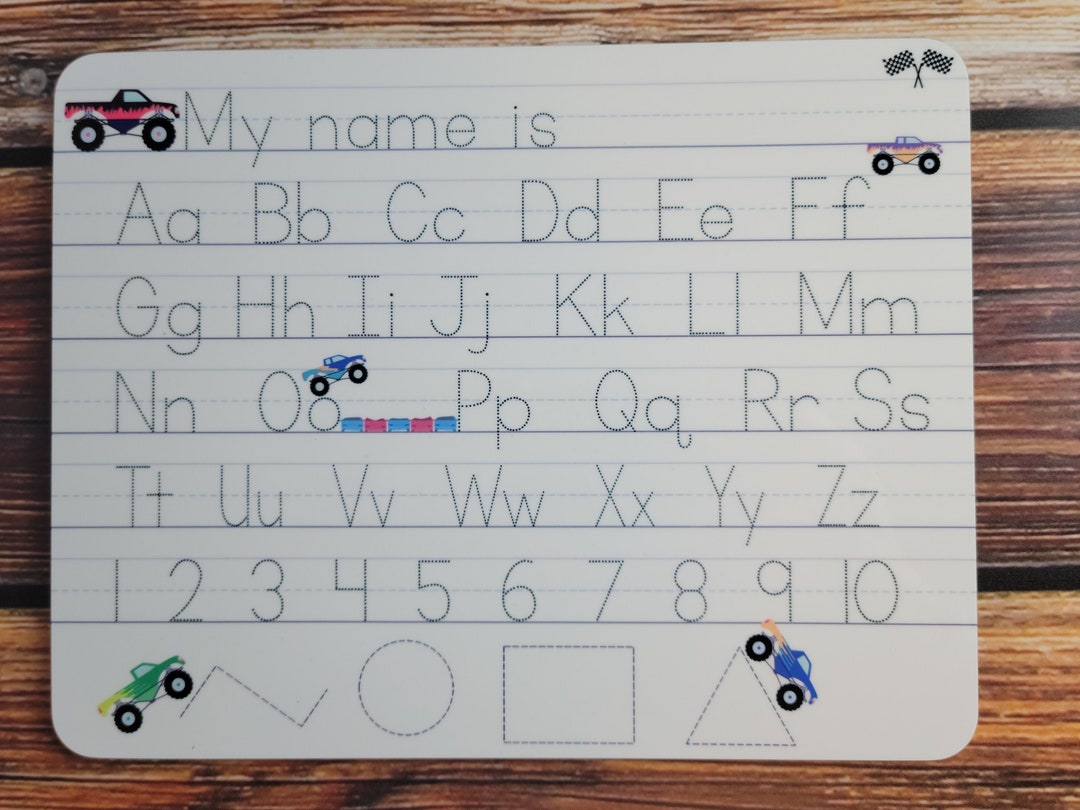 My name is
Aa Bb Cc Dd Ee Ff
Gg Hh Ii Jj Kk Ll Mm
Nn Oo Pp Qq Rr Ss
Tt Uu Vv Ww Xx Yy Zz
1 2 3 4 5 6 7 8 9 10